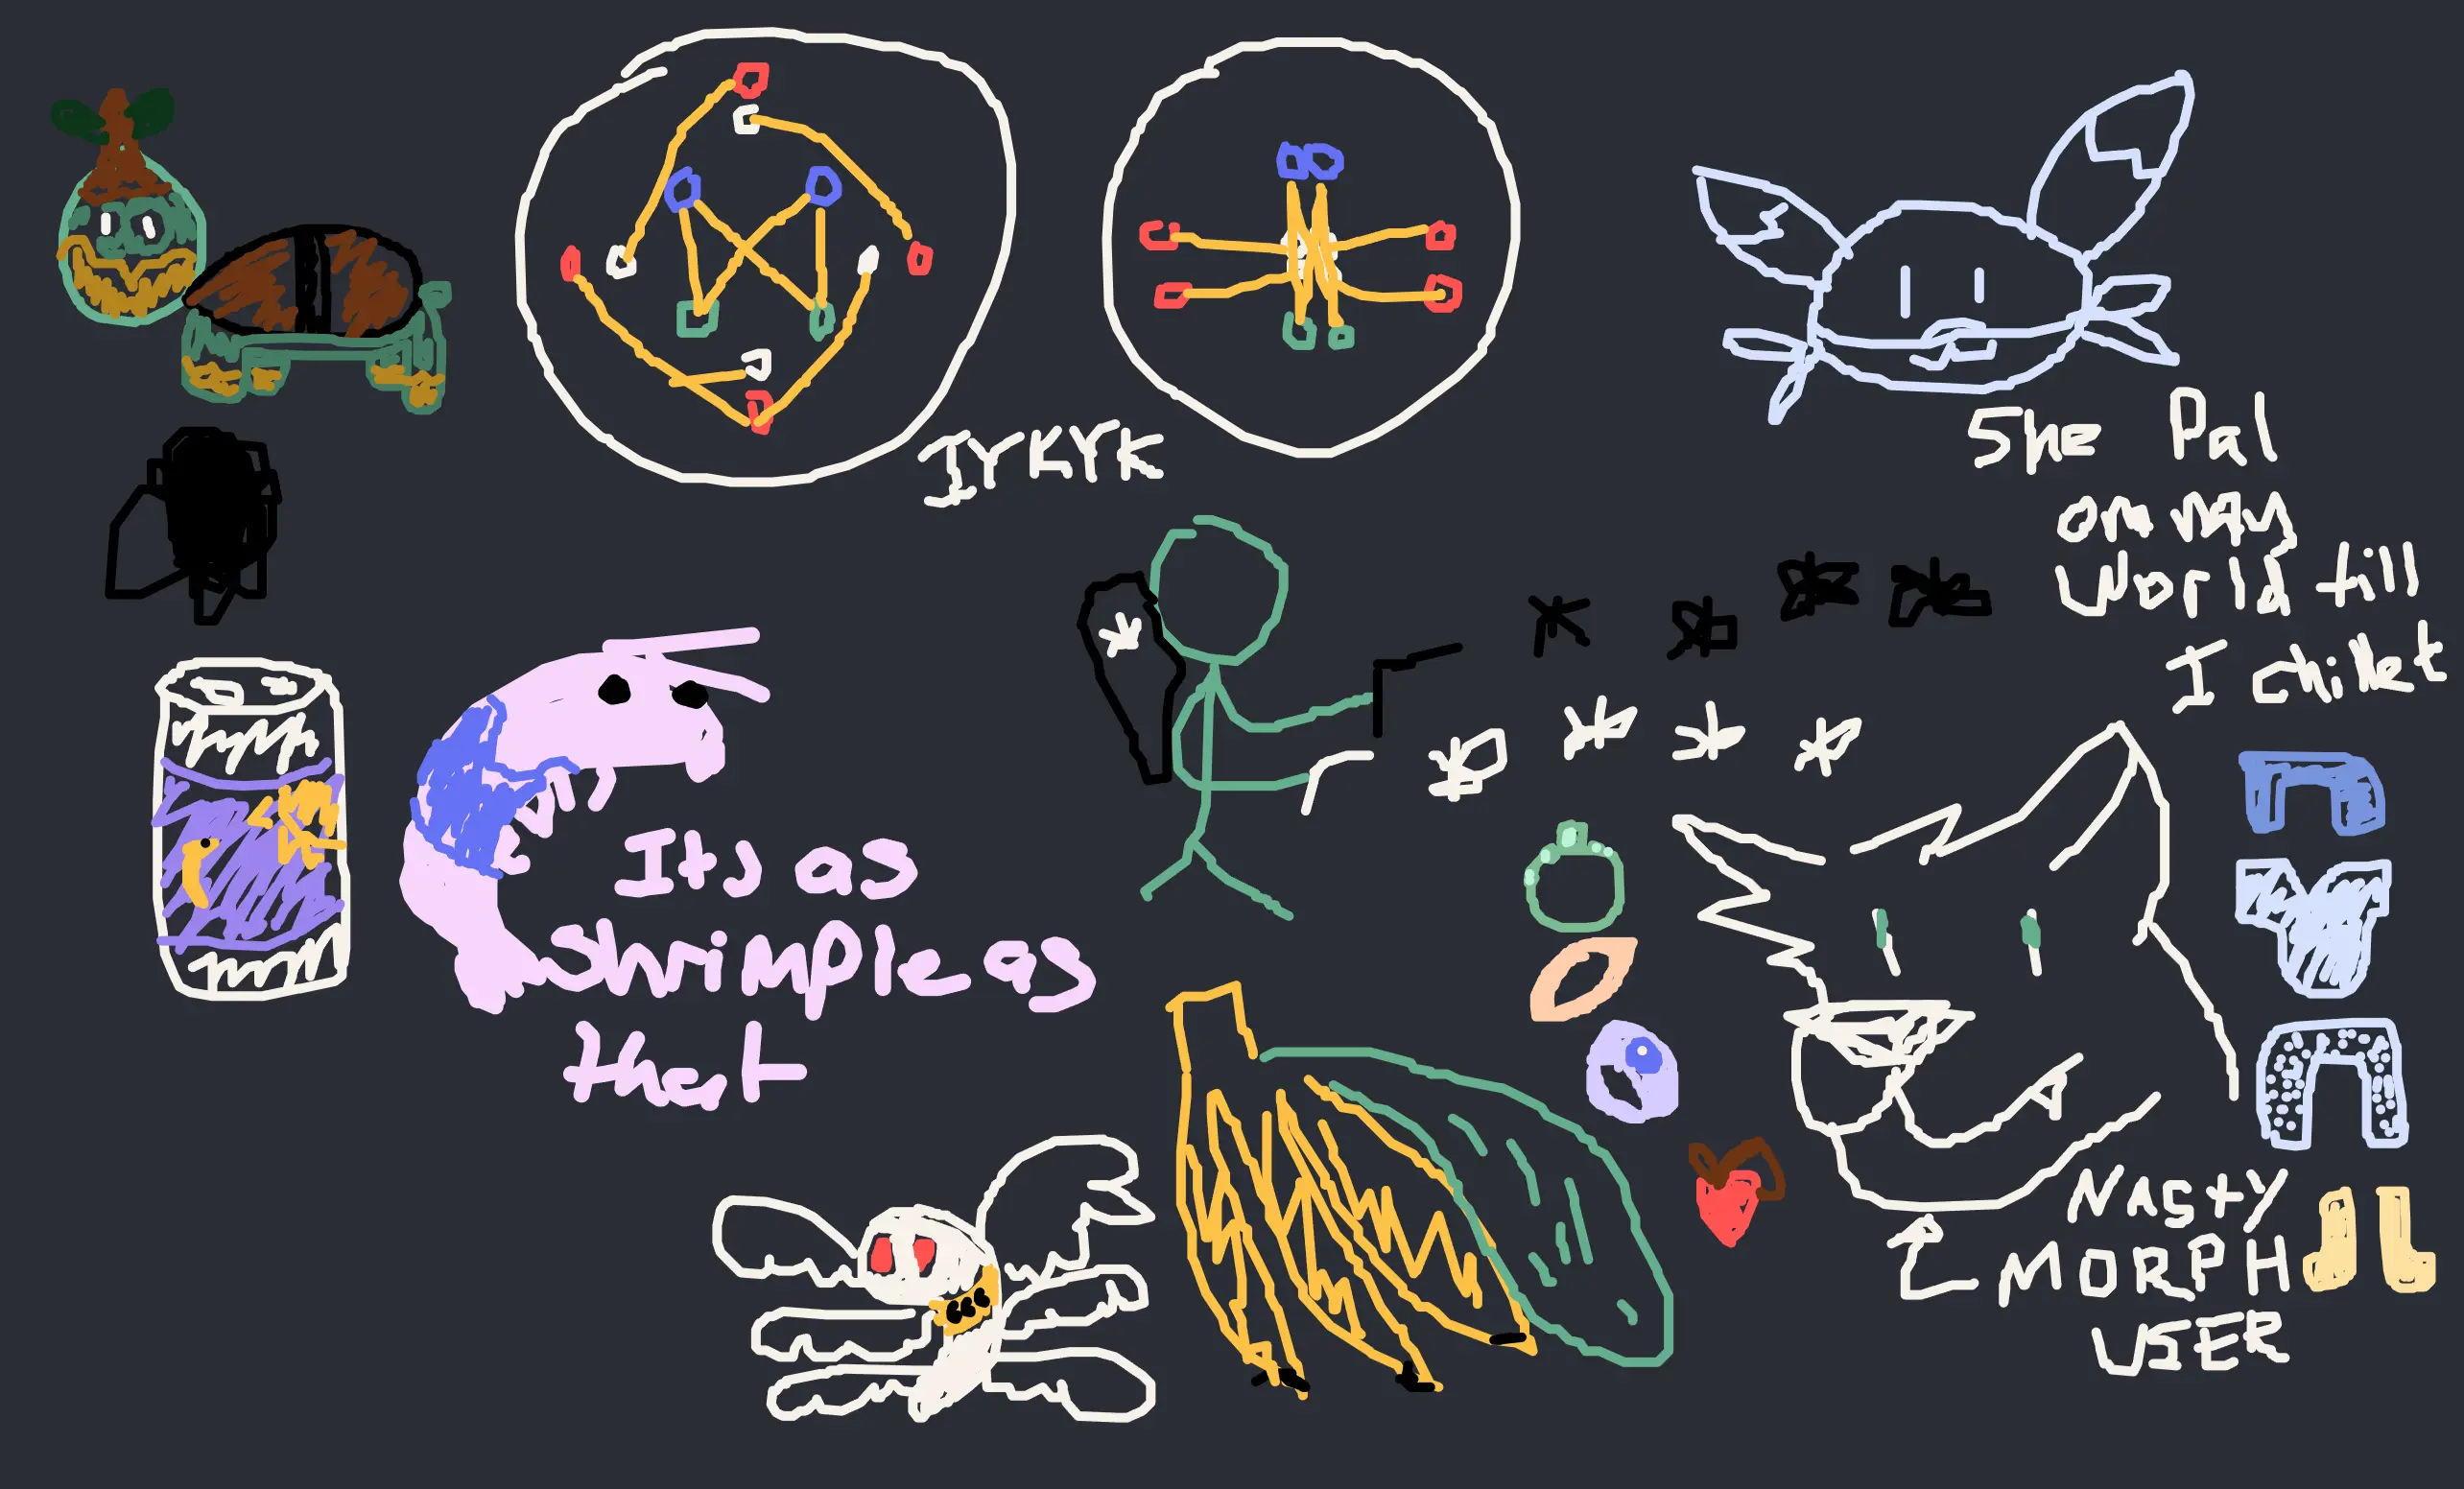 IYKYK
She Pal
on my
World till
I chiket
It's as
Shrimple as
that
NASTY
Z MORPH
USER